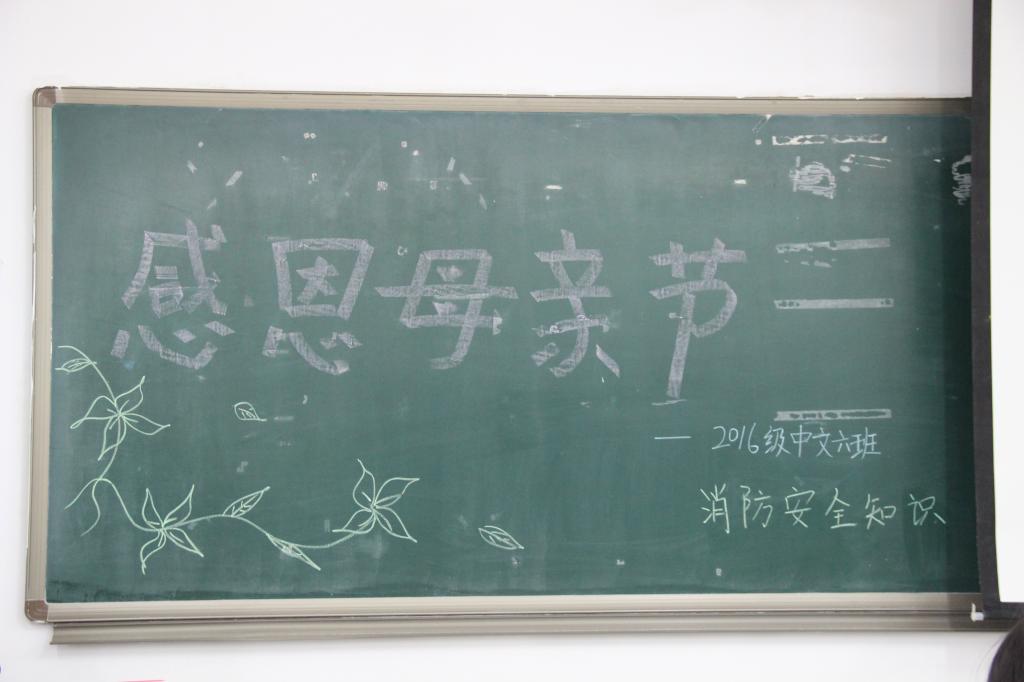 感恩母亲节
— 2016级中文六班
消防安全知识